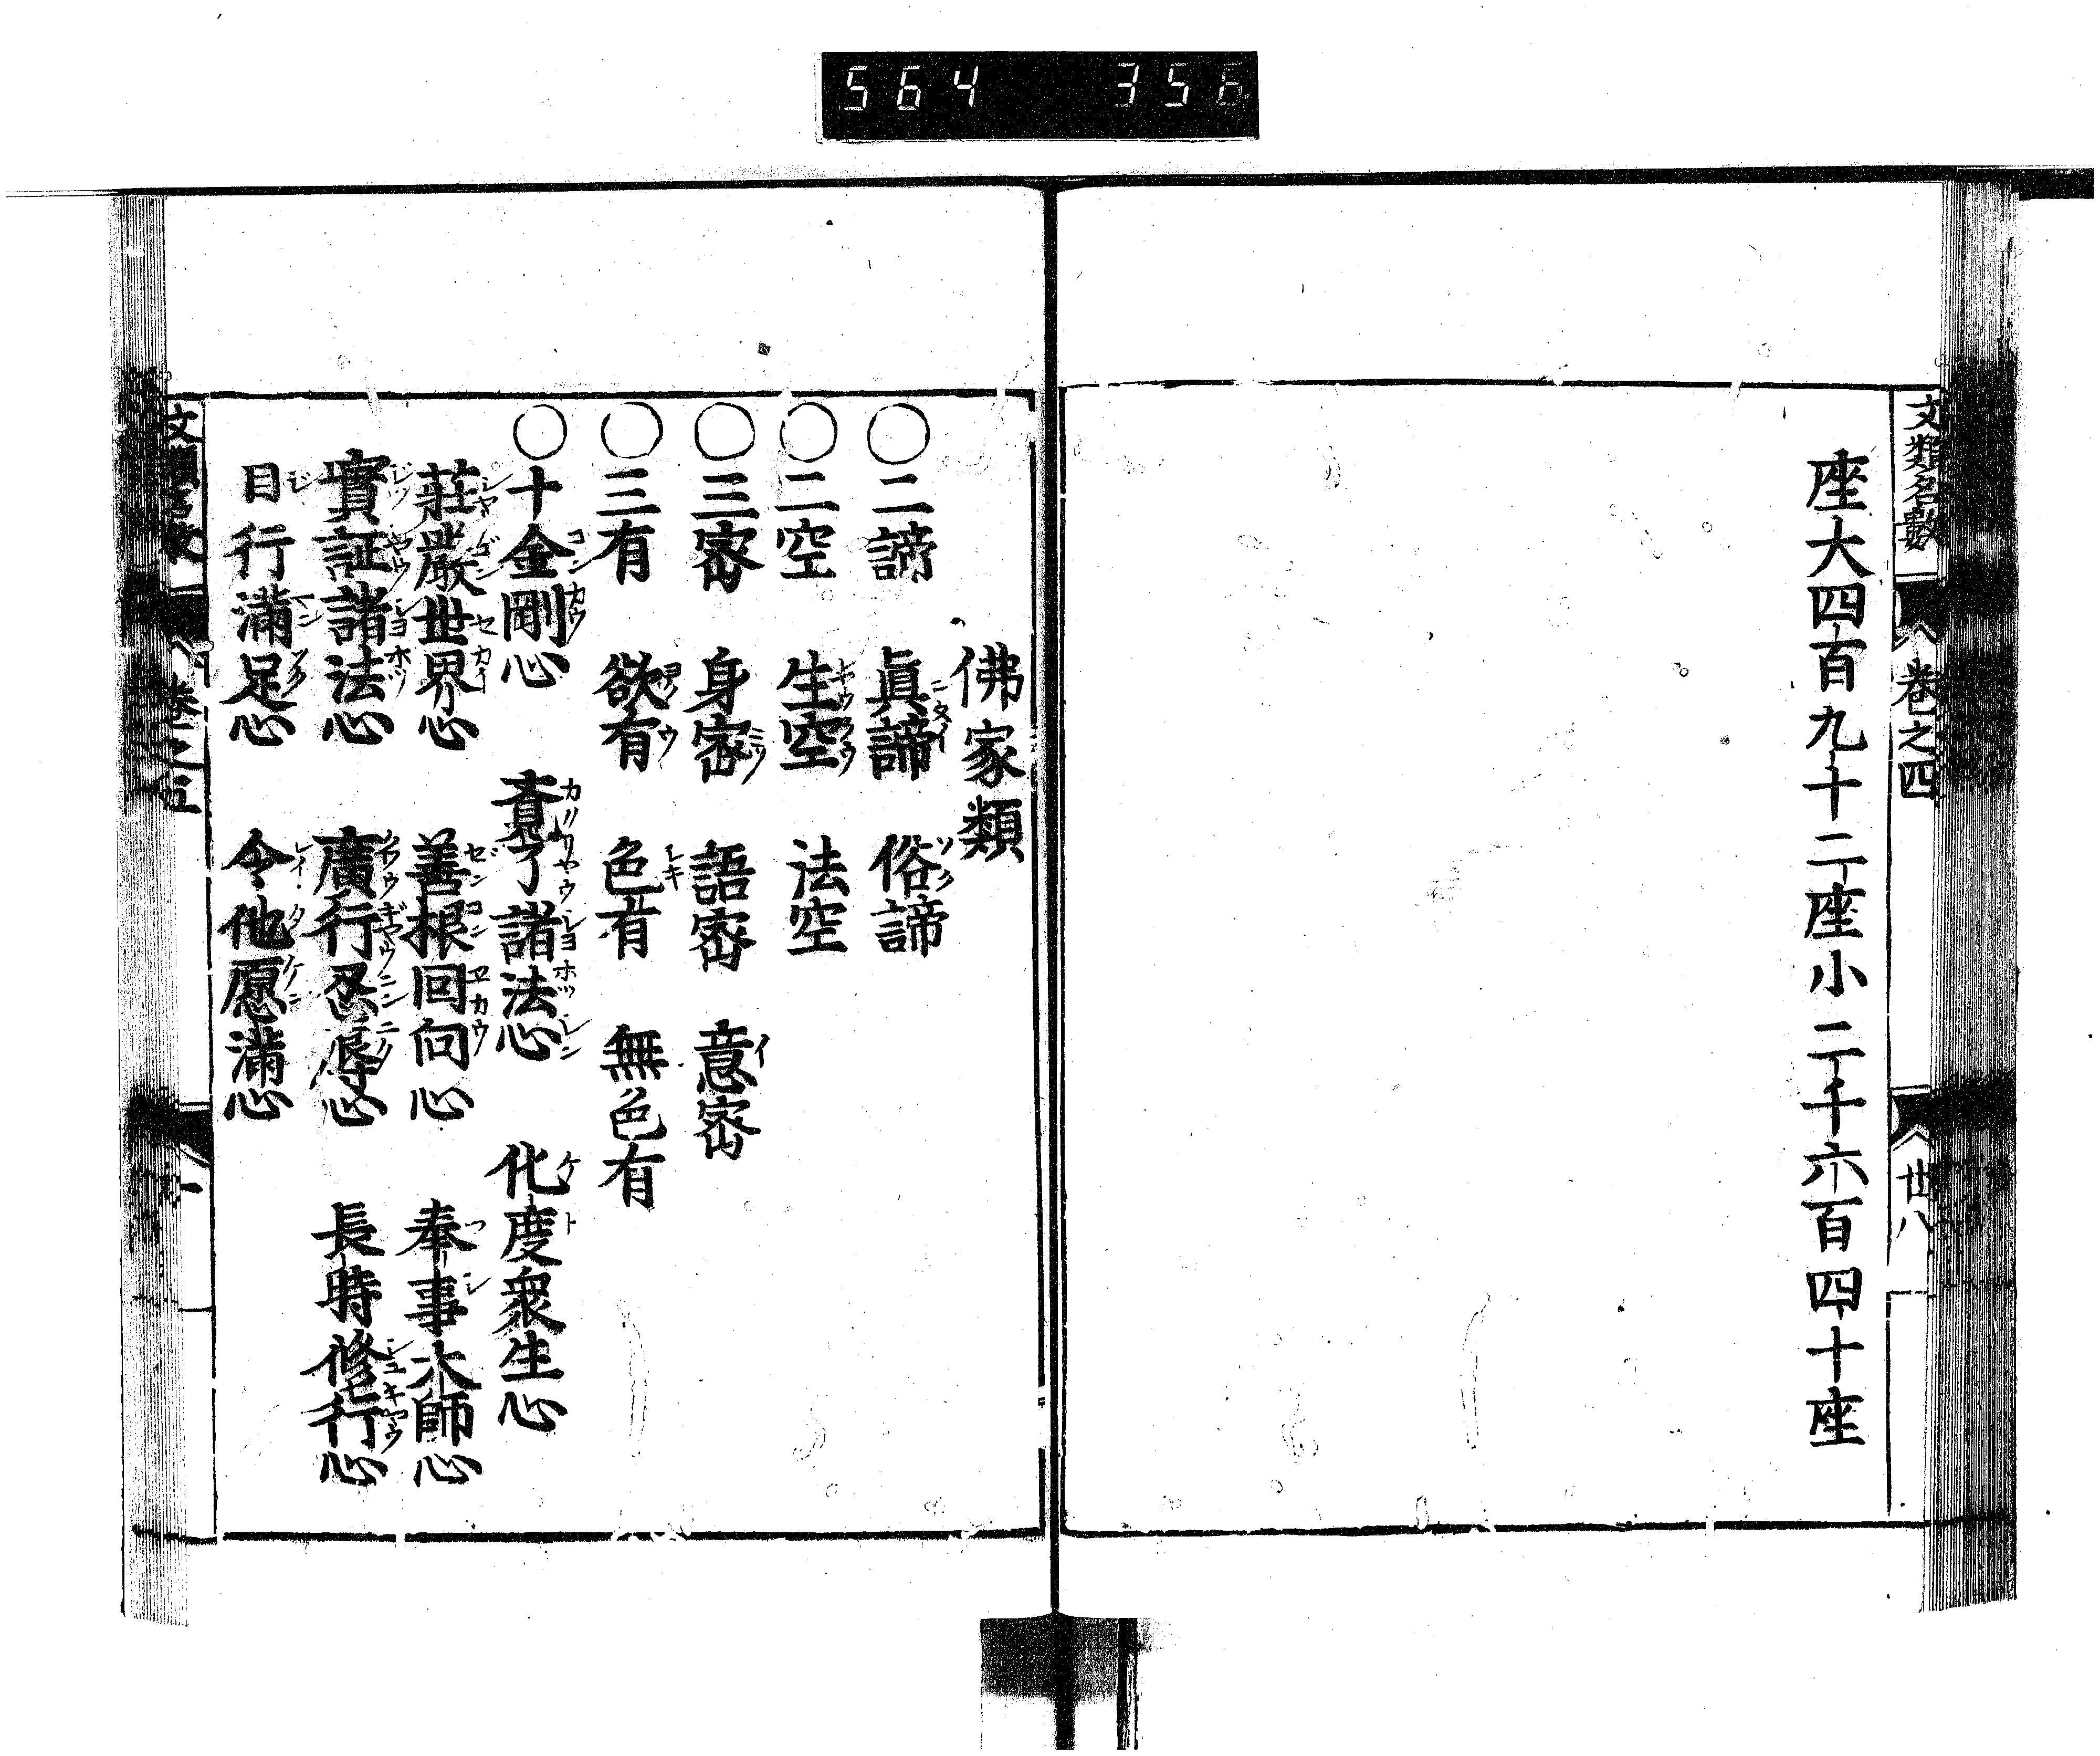 564 356
文類名數 卷之四 廿八
座大四百九十二座小二千六百四十座
佛家類
〇二諦 眞諦 俗諦
〇二空 生空 法空
〇三密 身密 語密 意密
〇三有 欲有 色有 無色有
〇十金剛心 覔了諸法心 化度衆生心
莊嚴世界心 善根回向心 奉事大師心
實証諸法心 廣行忍辱心 長時修行心
目行滿足心 令他愿滿心